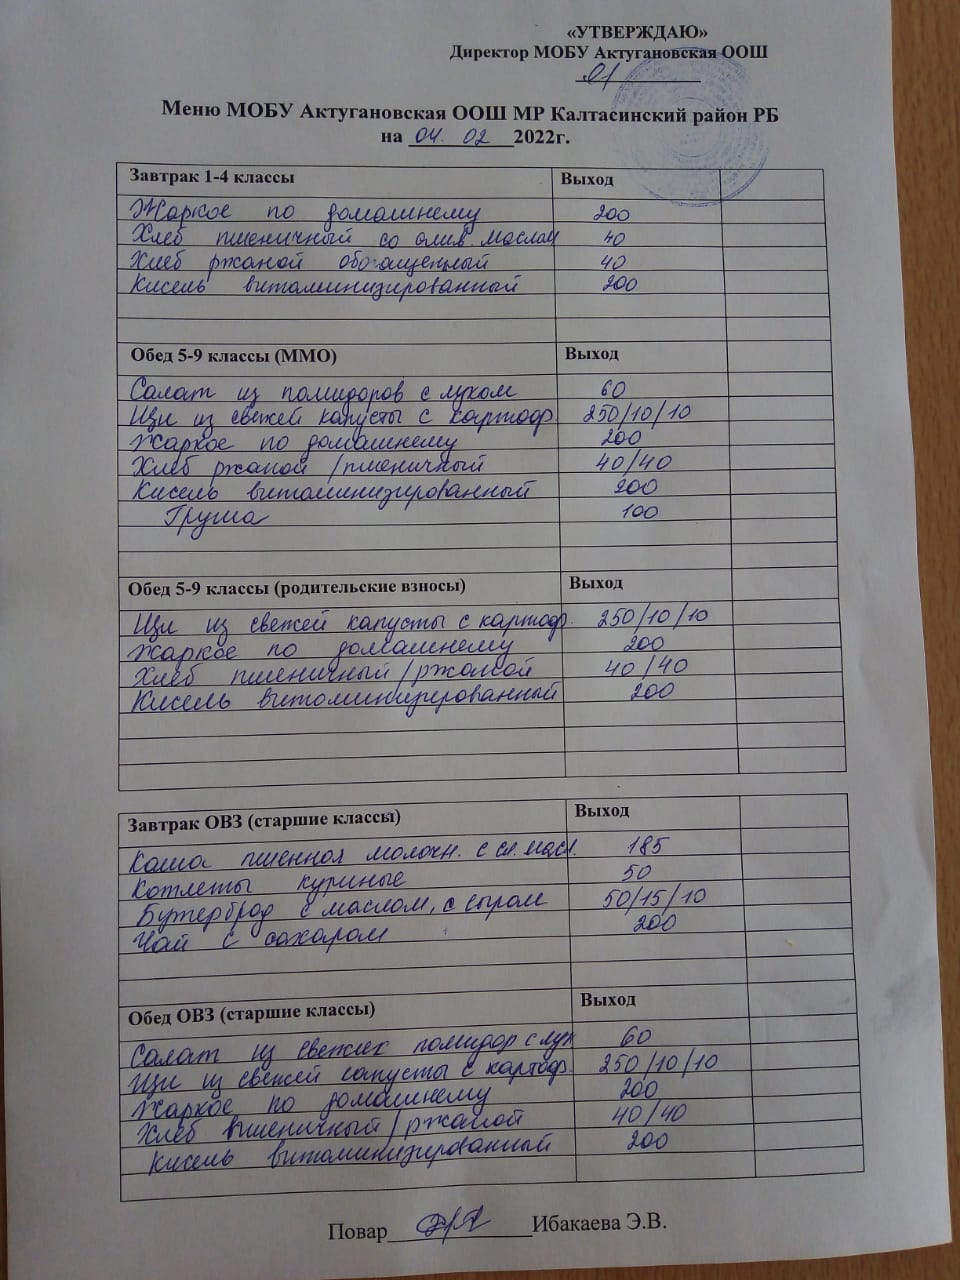 «УТВЕРЖДАЮ»
Директор МОБУ Актугановская ООШ
Меню МОБУ Актугановская ООШ МР Калтасинский район РБ
на 04. 02 2022г.
Завтрак 1-4 классы Выход
Жаркое по домашнему 200
Хлеб пшеничный со слив. маслом 40
Хлеб ржаной обогащенный 40
Кисель витаминизированный 200
Обед 5-9 классы (ММО) Выход
Салат из помидоров с луком 60
Щи из свежей капусты с картоф. 250/10/10
Жаркое по домашнему 200
Хлеб ржаной /пшеничный 40/40
Кисель витаминизированный 200
Груша 100
Обед 5-9 классы (родительские взносы) Выход
Щи из свежей капусты с картоф. 250/10/10
Жаркое по домашнему 200
Хлеб пшеничный/ржаной 40/40
Кисель витаминизированный 200
Завтрак ОВЗ (старшие классы) Выход
Каша пшенная молочн. с сл. масл. 185
Котлеты куриные 50
Бутерброд с маслом, с сыром 50/15/10
Чай с сахаром 200
Обед ОВЗ (старшие классы) Выход
Салат из свежих помидор с лук 60
Щи из свежей капусты с картоф. 250/10/10
Жаркое по домашнему 200
Хлеб пшеничный/ржаной 40/40
Кисель витаминизированный 200
Повар Ибакаева Э.В.